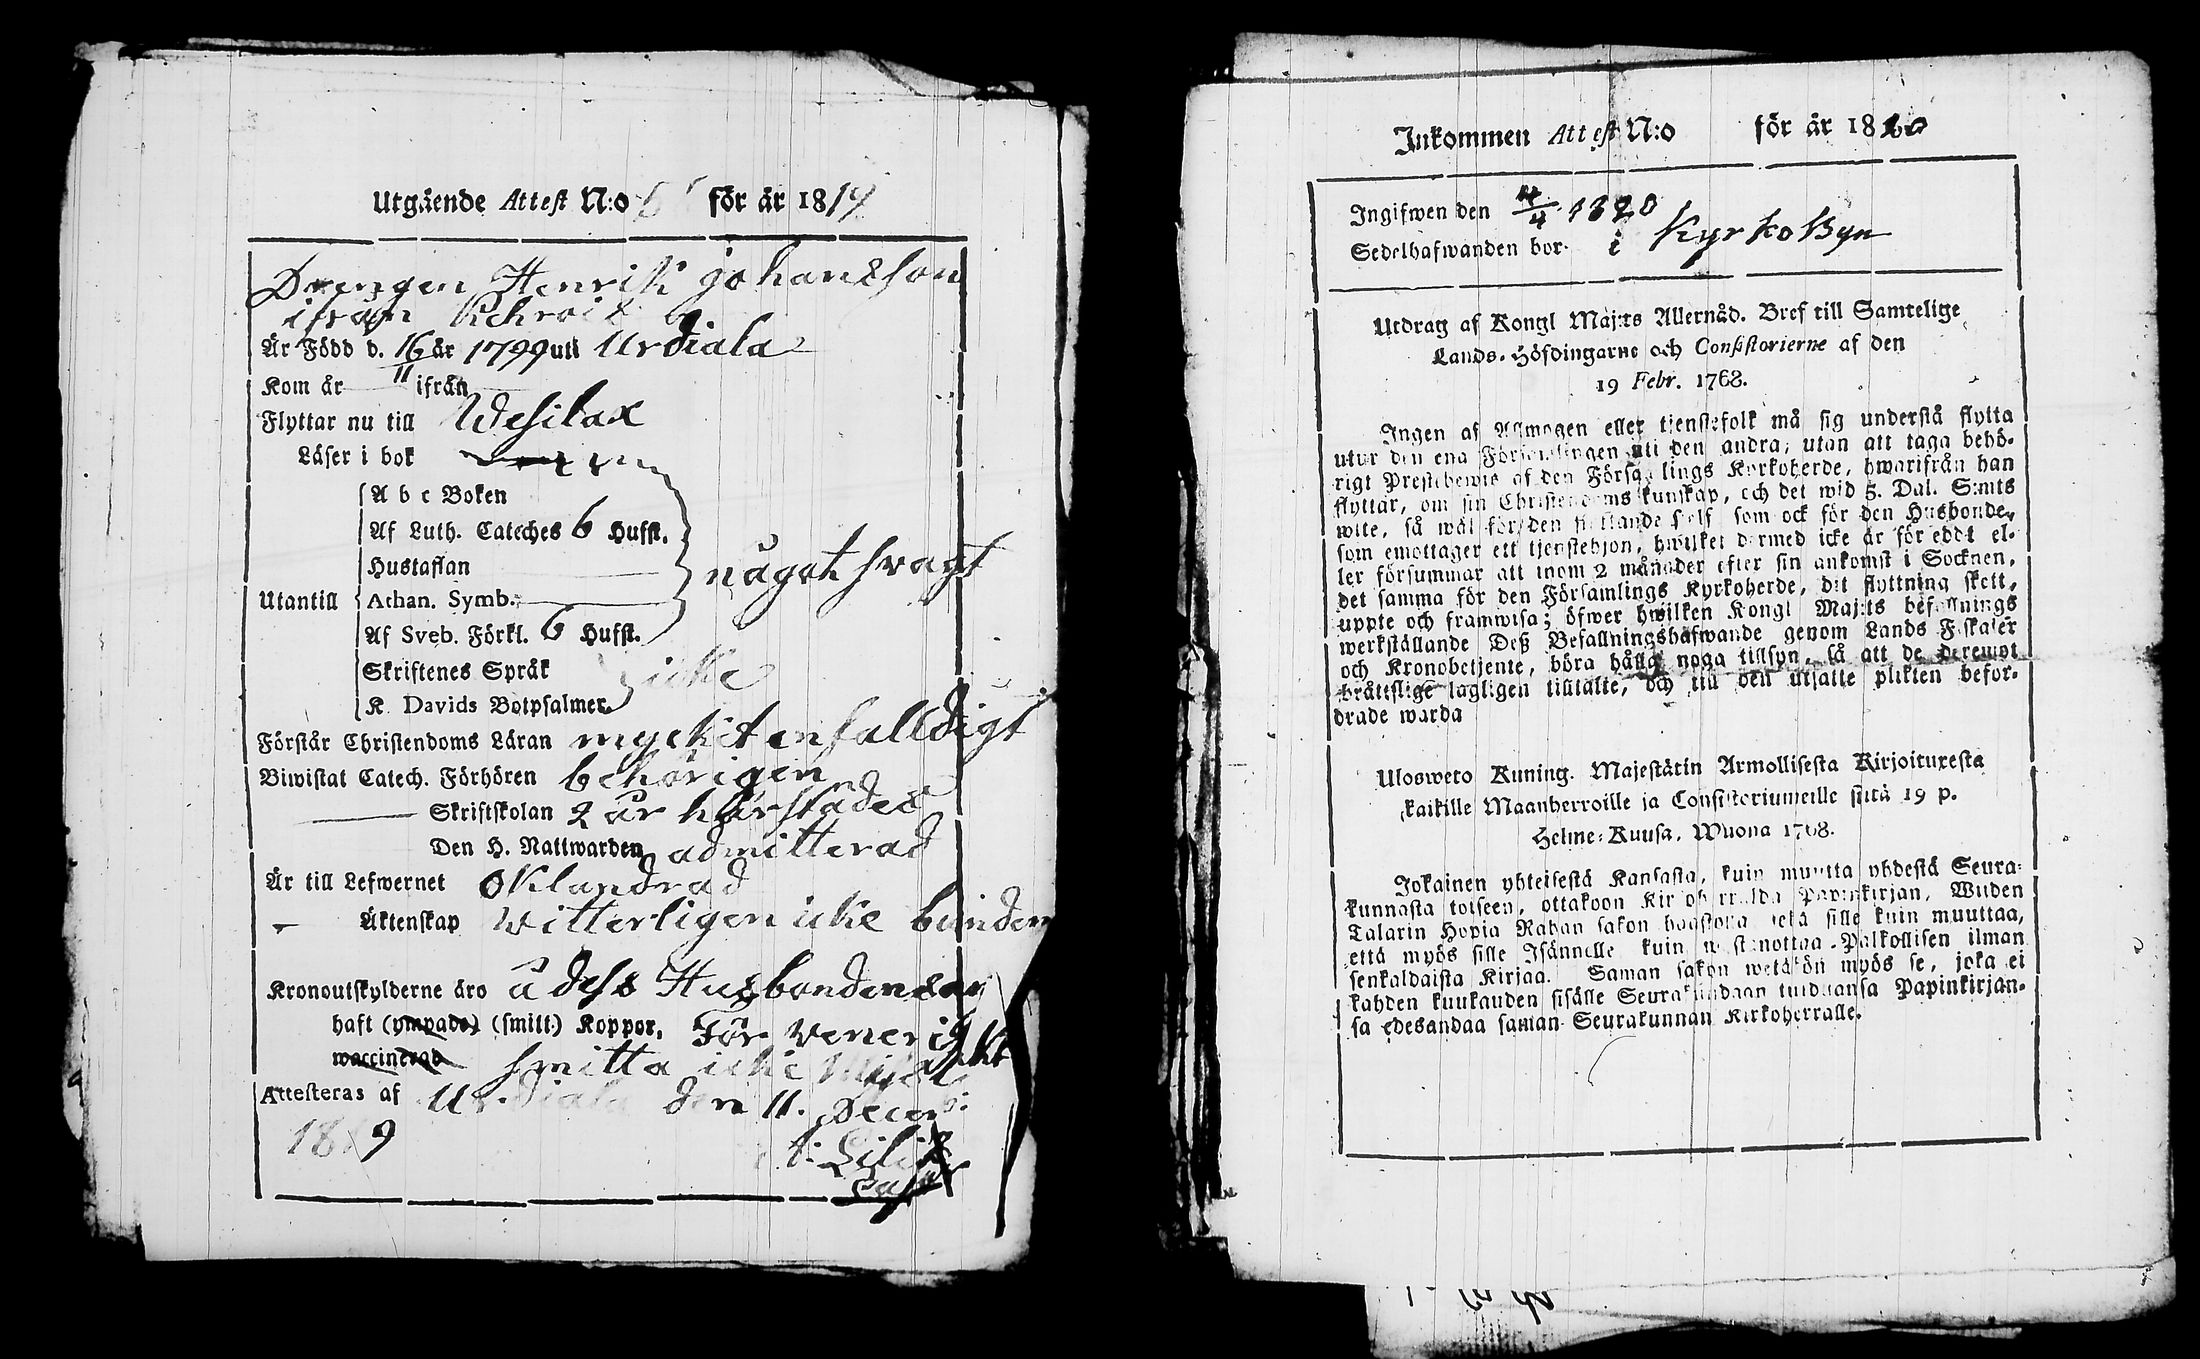 Utgående Attest N:o för år 1819
Drengen Henrik Johansson
ifrån
Är Född d. 16/11 år 1799 uti Urdiala
Kom år ifrån
Flyttar nu till Wesilax
Läser i bok
A b c Boken
Af Luth. Cateches 6 Hufst.
Hustaflan
något svagt
Utantill Athan. Symb.
Af Sveb. Förkl. 6 Hufst.
Skriftenes Språk
icke
K. Davids Botpsalmer
Förstår Christendoms Läran myckit enfalldigt
Biwistat Catech. Förhören behörigen
Skriftskolan 2 år härstädes
Den H. Nattwarden admitterad
Är till Lefwernet oklandrad
Äktenskap witterligen icke bunden
Kronoutskylderne äro å dess Husbondens
haft (ympade) (smitt:) Koppor. För venerisk
waccinerad smitta icke
Attesteras af Urdiala den 11. Decemb:
1819
Inkommen Attest N:o för år 1820
Ingifwen den 4/4 1820
Sedelhafwanden bor i KyrkoByn
Utdrag af Kongl Maj:ts Allernåd. Bref till Samtelige
Lands-Höfdingarne och Consistorierne af den
19 Febr. 1768.
Ingen af Allmogen eller tjenstefolk må sig understå flytta
utur den ena Församlingen uti den andra, utan att taga behö-
rigt Prestebewis af den Församlings Kyrkoherde, hwarifrån han
flyttar, om sin Christendoms kunskap, och det wid 5. Dal. S:mts
wite, så wäl för den flyttande sjelf som ock för den Husbonde,
som emottager ett tjenstehjon, hwilket dermed icke är föreddt el-
ler försummar att inom 2 månader efter sin ankomst i Socknen,
det samma för den Församlings Kyrkoherde, dit flyttning skett,
uppte och framwisa; öfwer hwilken Kongl Maj:ts befallnings
werkställande Deß Befallningshafwande genom Lands Fiskaler
och Kronobetjente, böra hålla noga tillsyn, så att de deremot
bråttslige lagligen tilltalte, och till den utsatte plikten befor-
drade warda
Ulosweto Kuning. Majestätin Armollisesta Kirjoituxesta
kaikille Maanherroille ja Consistoriumeille siitä 19 p.
Helme-Kuusa, Wuona 1768.
Jokainen yhteisestä Kansasta, kuin muutta yhdestä Seura-
kunnasta toiseen, ottakoon Kirkoherralda Papinkirjan, Wiiden
Talarin Hopia Rahan sakon haastolla sekä sille kuin muuttaa,
että myös sille Isännelle kuin wastanottaa Palkollisen ilman
senkaldaista Kirjaa. Saman sakon wetäkön myös se, joka ei
kahden kuukauden sisälle Seurakundaan tulduansa Papinkirjan-
sa edesandaa saman Seurakunnan Kirkoherralle.